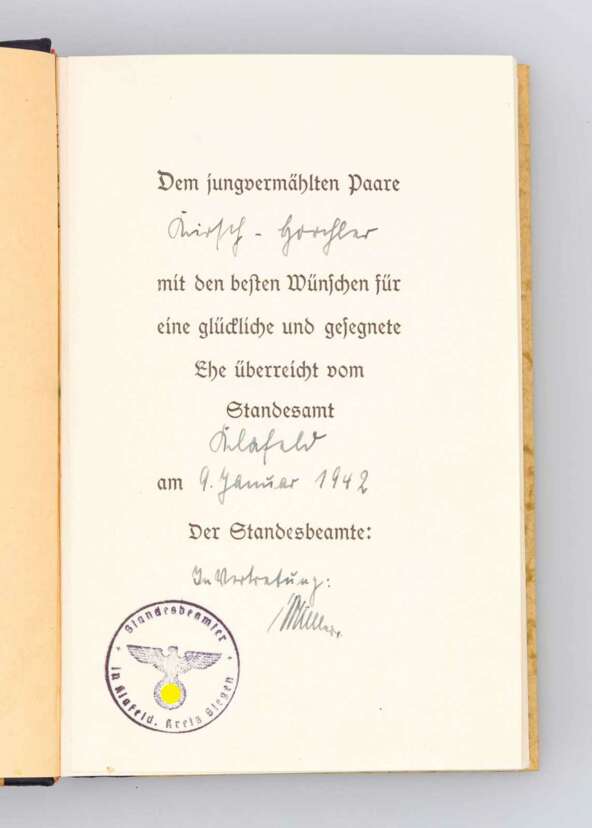 Dem jungvermählten Paare
Kirsch - Horchler
mit den besten Wünschen für
eine glückliche und gesegnete
Ehe überreicht vom
Standesamt
Klafeld
am 9. Januar 1942
Der Standesbeamte:
In Vertretung:
Standesbeamter
in Klafeld, Kreis Siegen